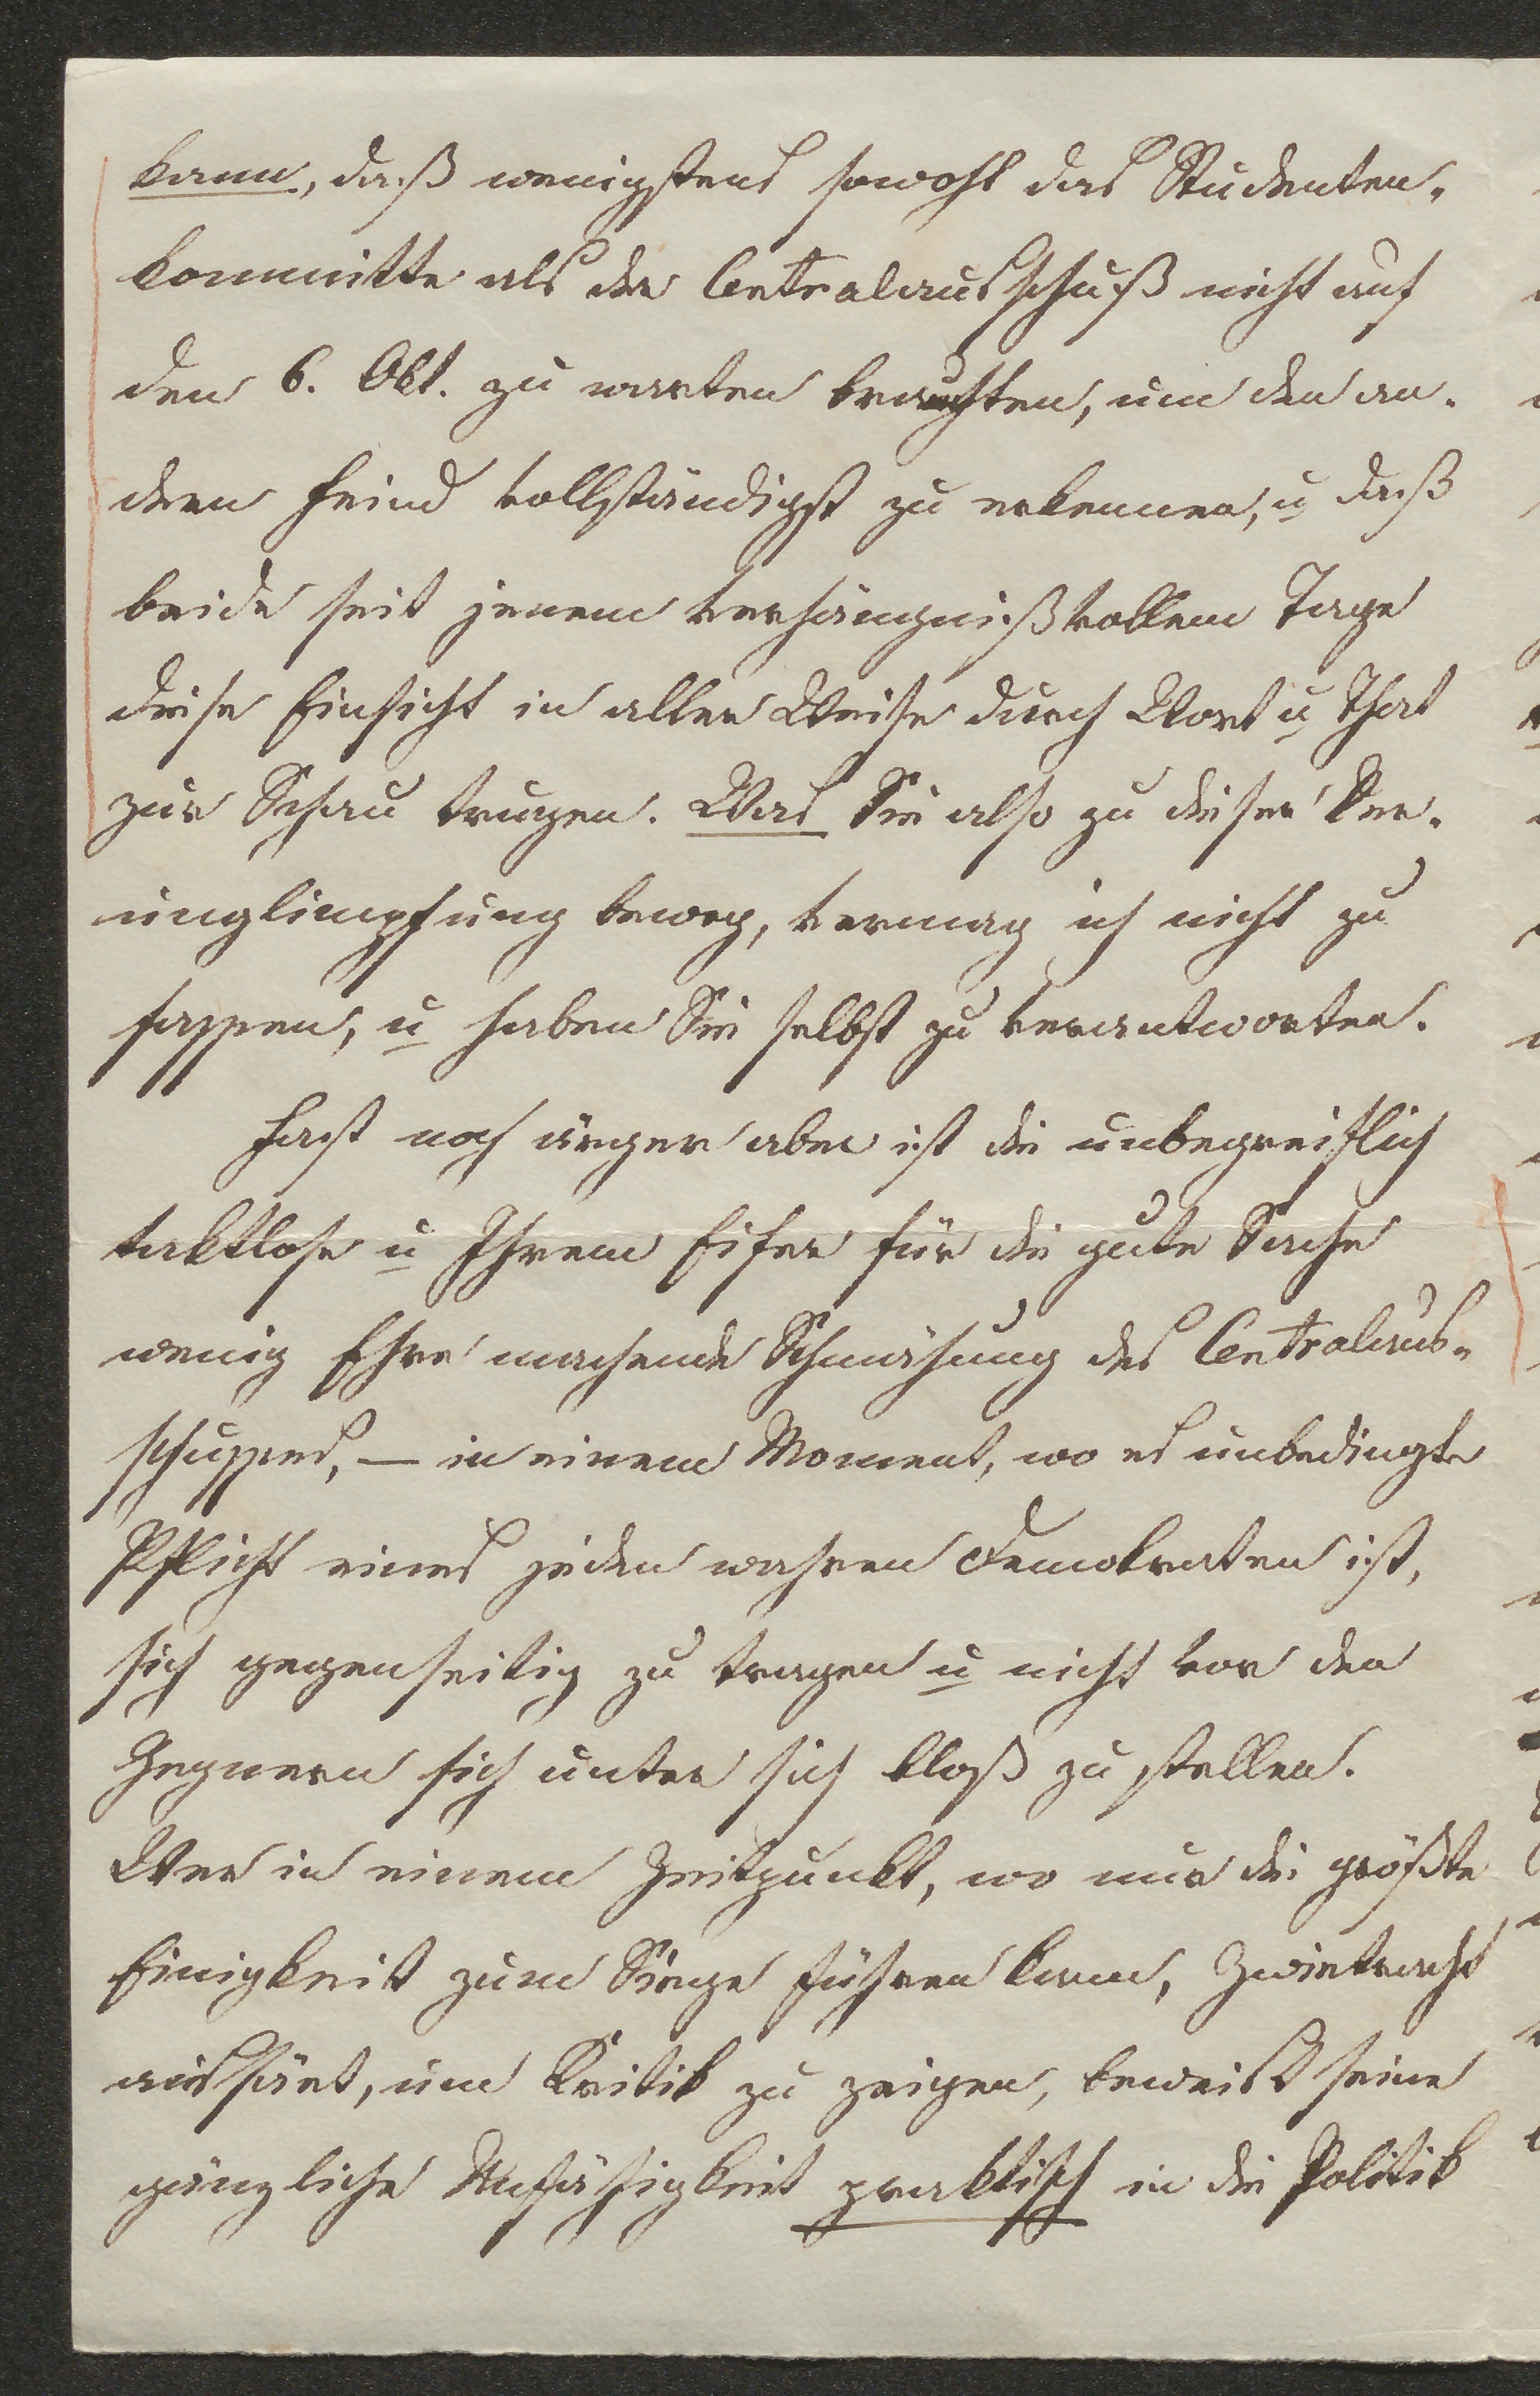 kann, daß wenigstens sowohl das Studenten-
kommitte als der Centralausschuß nicht auf
den 6. Okt. zu warten brauchten, um den an-
dern Feind vollständigst zu erkennen, u daß
beide seit jenem verhängnißvollem Tage
diese Einsicht in aller Weise durch Wort u That
zur Schau trugen. Was Sie also zu dieser Ver-
unglimpfung bewog, vermag ich nicht zu
fassen, u haben Sie selbst zu verantworten.
Fast noch ärger aber ist die unbegreiflich
taktlose u Ihrem Eifer für die gute Sache
wenig Ehre machende Schmähung des Centralaus-
schusses, — in einem Moment, wo es unbedingte
Pflicht eines jeden wahren Demokraten ist,
sich gegenseitig zu tragen u nicht vor den
Gegnern sich unter sich bloß zu stellen.
Wer in einem Zeitpunkt, wo nur die größte
Einigkeit zum Siege führen kann, Zwietracht
aussäet, um Kritik zu zeigen, beweist seine
gänzliche Unfähigkeit praktisch in die Politik